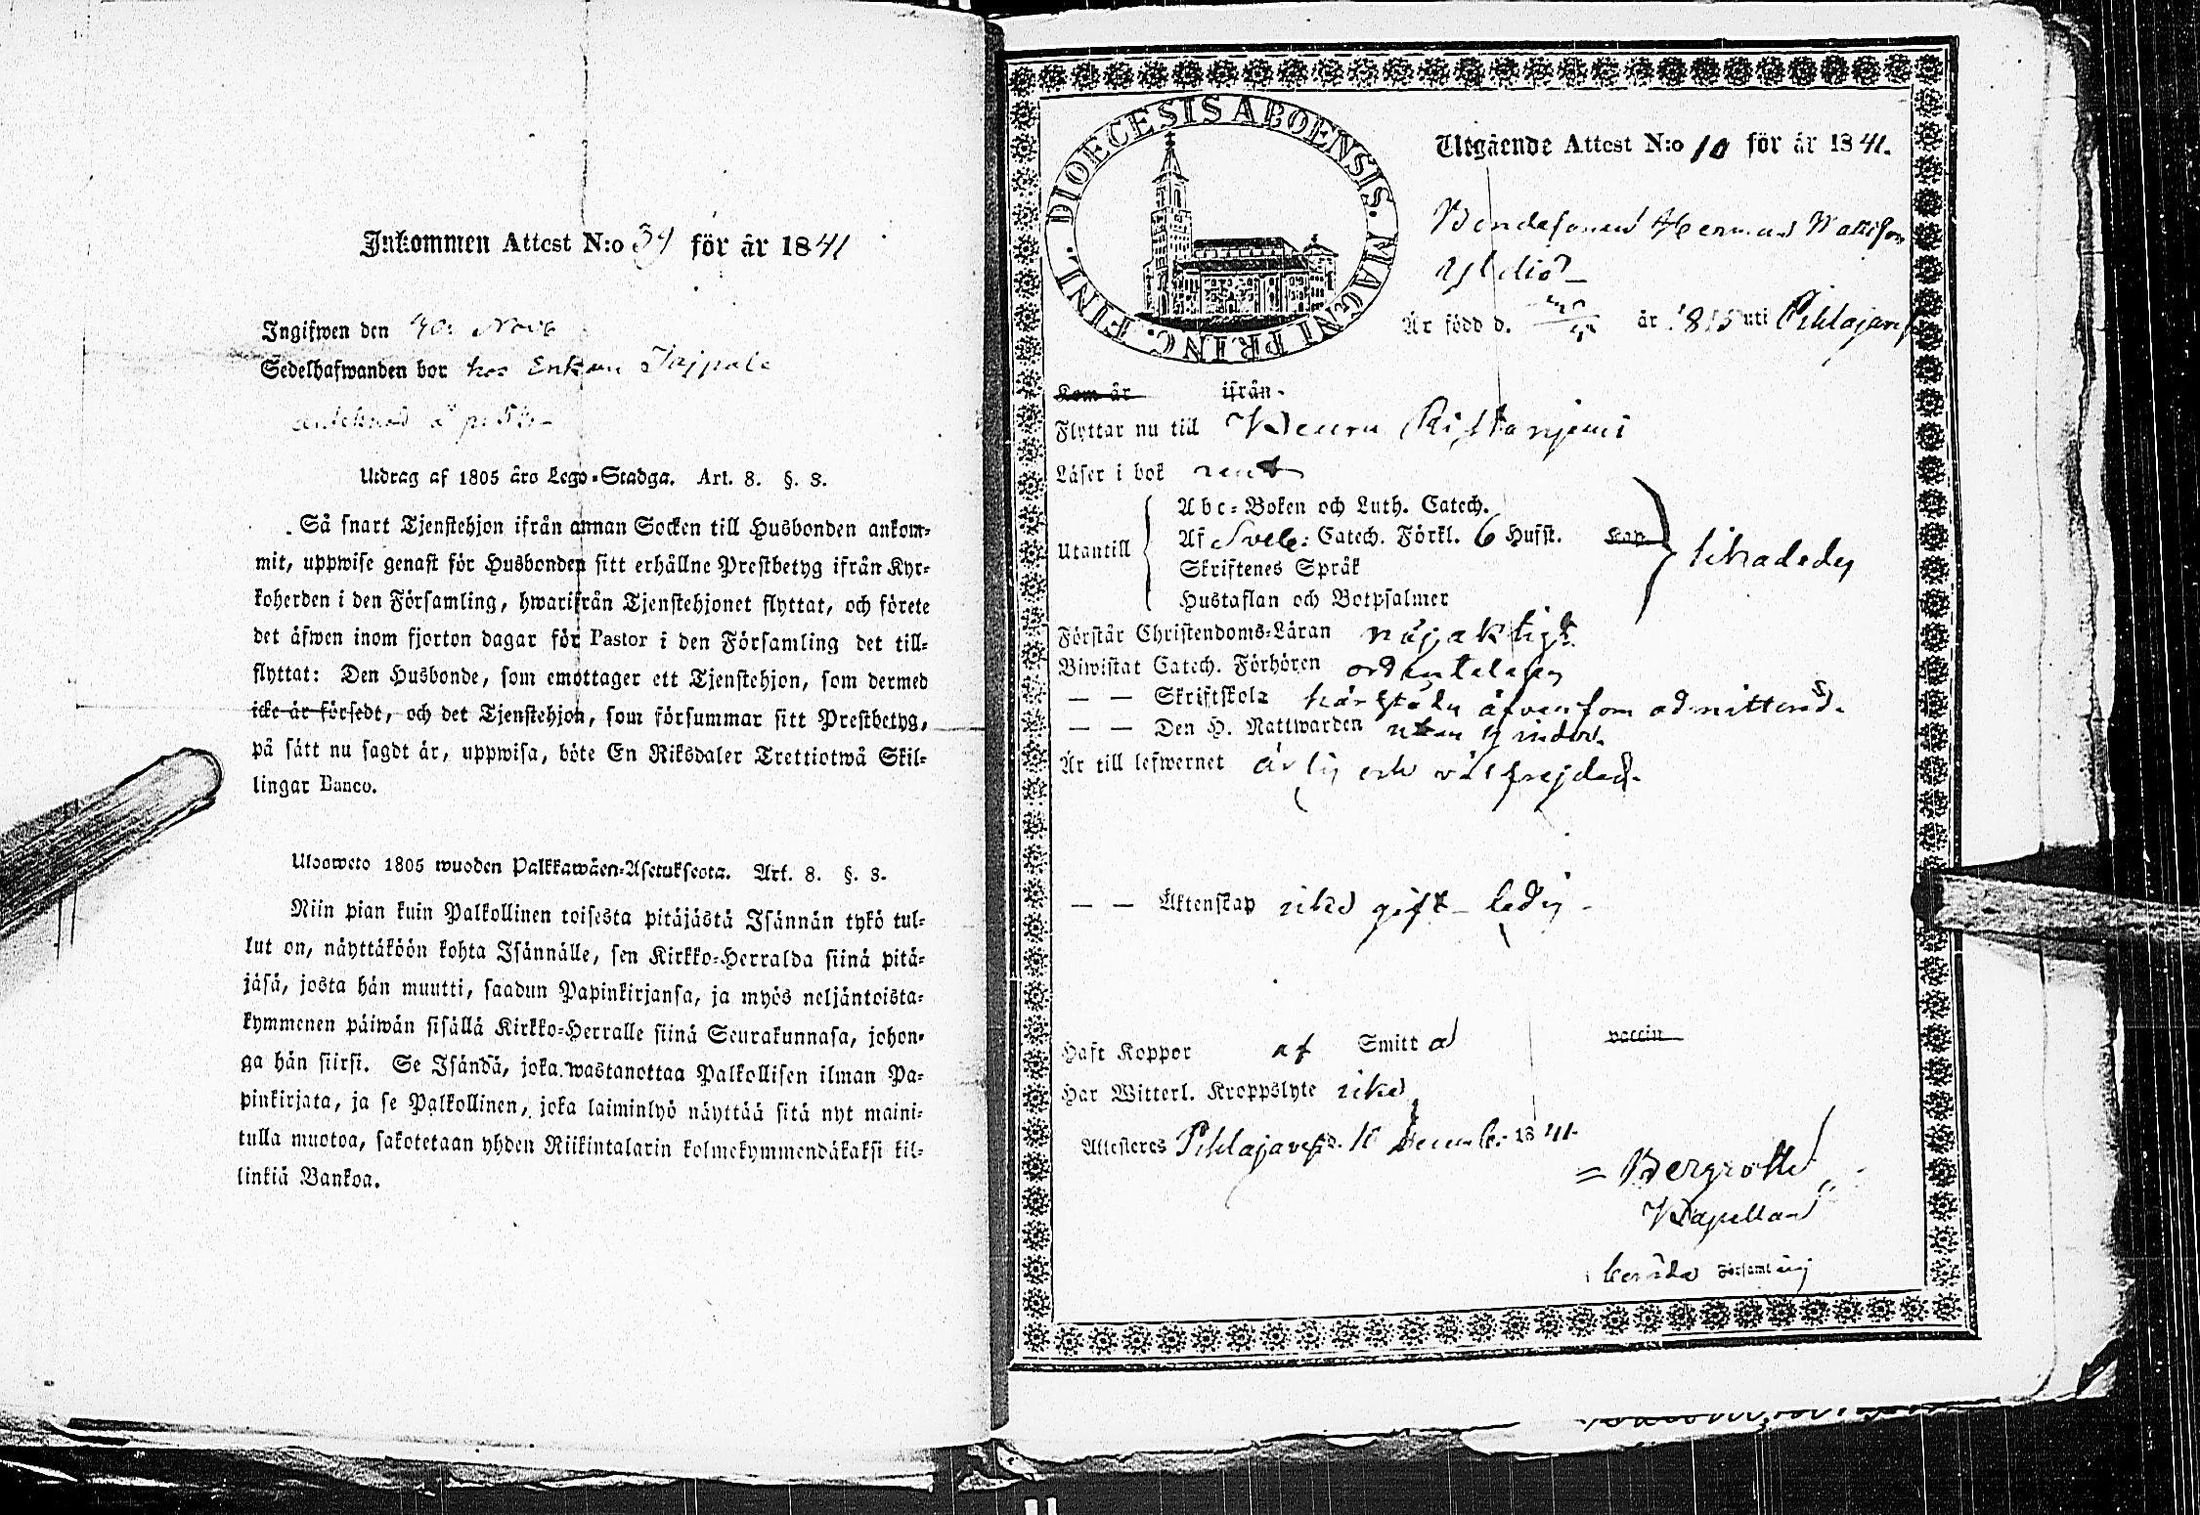 Inkommen Attest N:o 39 för år 1841
Ingifwen den
Sedelhafwanden bor hos Enkan
Utdrag af 1805 års Lego-Stadga. Art. 8. §. 8.
Så snart Tjenstehjon ifrån annan Socken till Husbonden ankom-
mit, uppwise genast för Husbonden sitt erhållne Prestbetyg ifrån Kyr-
koherden i den Församling, hwarifrån Tjenstehjonet flyttat, och förete
det äfwen inom fjorton dagar för Pastor i den Församling det till-
flyttat: Den Husbonde, som emottager ett Tjenstehjon, som dermed
icke är försedt, och det Tjenstehjon, som försummar sitt Prestbetyg,
på sätt nu sagdt är, uppwisa, böte En Riksdaler Trettiotwå Skil-
lingar Banco.
Ulosweto 1805 wuoden Palkkawäen-Asetuksesta. Art. 8. §. 8.
Niin pian kuin Palkollinen toisesta pitäjästä Isännän tykö tul-
lut on, näyttäköön kohta Isännälle, sen Kirkko-Herralda siinä pitä-
jäsä, josta hän muutti, saadun Papinkirjansa, ja myös neljäntoista-
kymmenen päiwän sisällä Kirkko-Herralle siinä Seurakunnasa, johon-
ga hän siirsi. Se Isändä, joka wastanottaa Palkollisen ilman Pa-
pinkirjata, ja se Palkollinen, joka laiminlyö näyttää sitä nyt maini-
tulla muotoa, sakotetaan yhden Riikintalarin kolmekymmendäkaksi kil-
linkiä Bankoa.
DIOECESIS ABOENSIS. MAGNI PRINC. FINL.
Utgående Attest N:o 10 för år 1841.
Bondesonen Herman Mattsson
Är född d. år 1815 uti Pihlajavesi
Kom år ifrån
Flyttar nu till Keuru
Läser i bok rent
Utantill
Abc-Boken och Luth. Catech.
Af Sveb: Catech. Förkl. 6 Hufst. Kap
Skriftenes Språk
Hustaflan och Botpsalmer
likaledes
Förstår Christendoms-Läran nöjaktigt.
Biwistat Catech. Förhören ordenteligen
— — Skriftskola härstädes äfvensom admitterad.
— — Den H. Nattwarden utan hinder.
Är till lefwernet ärlig och välfrejdad.
— — Äktenskap icke gift - ledig -
Haft Koppor af Smitta vaccin
Har Witterl. Kroppslyte icke
Attesteras Pihlajavesi d. December 1841.
= Bergroth
Kapellan
i berörde Församling